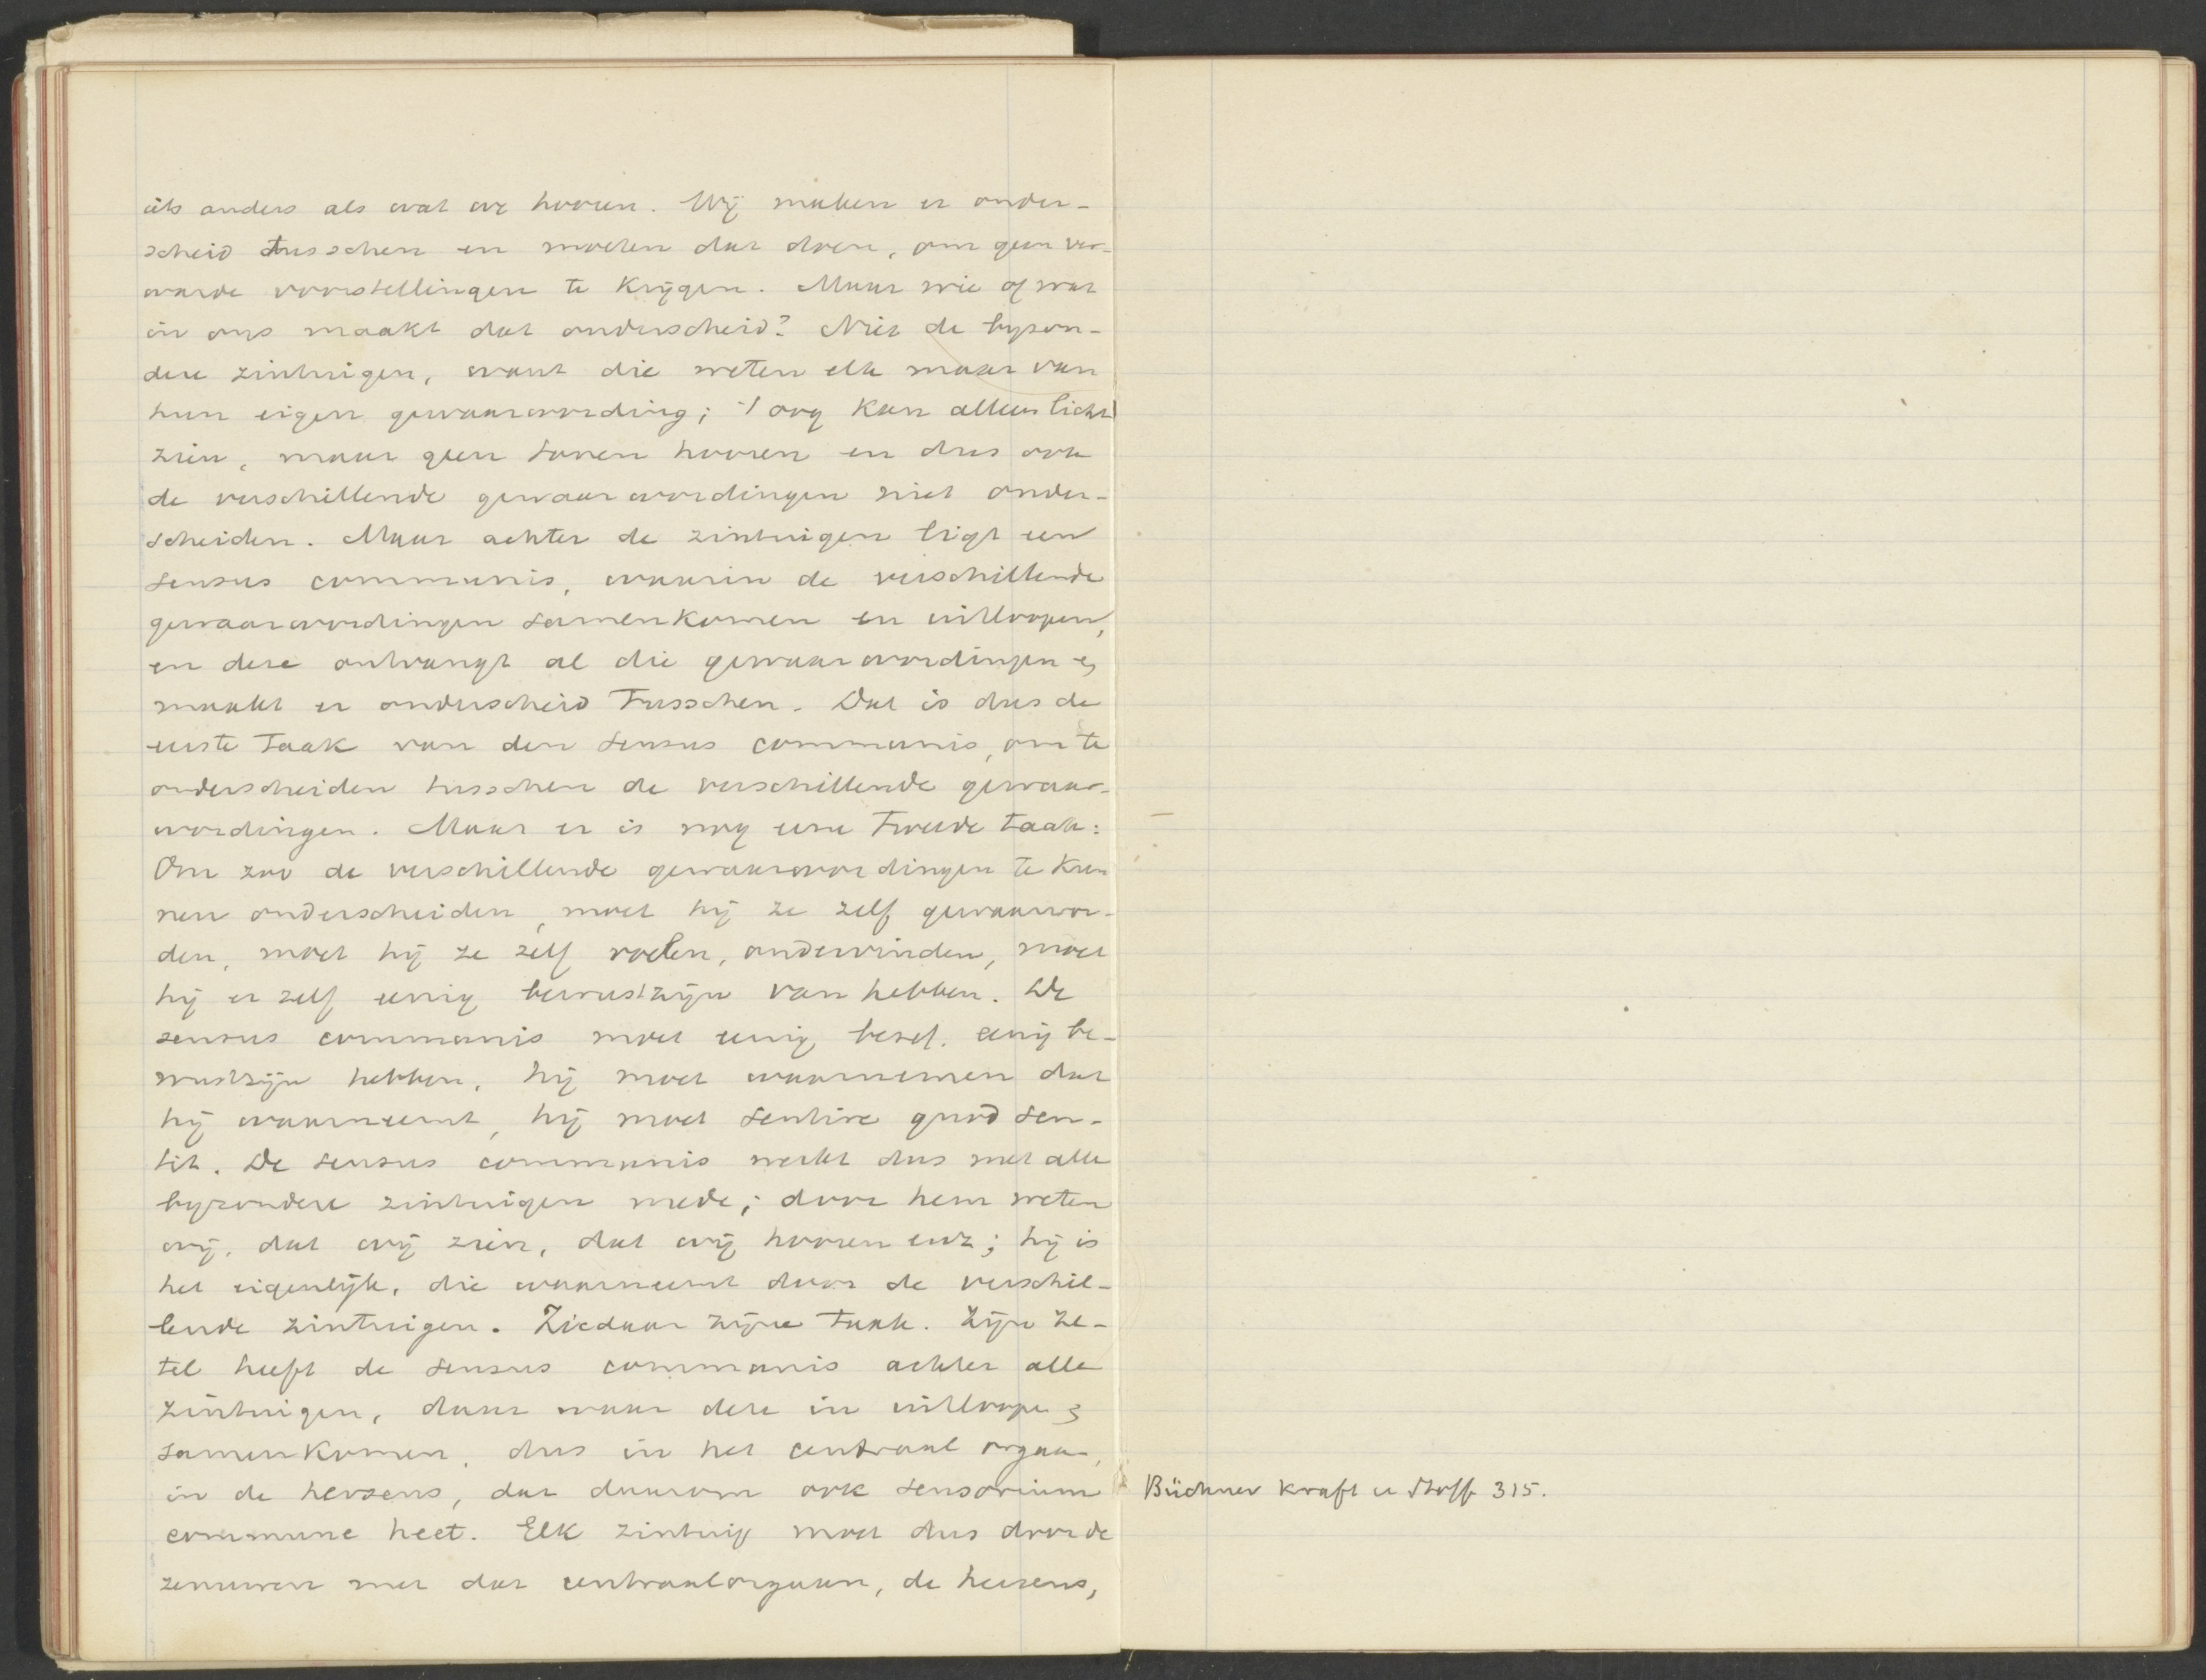 iets anders als wat we hooren. Wij maken er onder-
scheid tusschen en moeten dat doen, om geen ver-
warde voorstellingen te krijgen. Maar wie of wat
in ons maakt dat onderscheid? Niet de byzon-
dere zintuigen, want die weten elk maar van
hun eigen gewaarwording; 't oog kan alleen licht
zien, maar geen tonen hooren en dus ook
de verschillende gewaarwordingen niet onder-
scheiden. Maar achter de zintuigen ligt een
sensus communis, waarin de verschillende
gewaarwordingen samenkomen en uitloopen,
en deze ontvangt al die gewaarwordingen en
maakt er onderscheid tusschen. Dat is dus de
eerste taak van den sensus communis, om te
onderscheiden tusschen de verschillende gewaar-
wordingen. Maar er is nog eene tweede taak:
Om zoo de verschillende gewaarwordingen te kun
nen onderscheiden, moet hij ze zelf gewaarwor-
den, moet hij ze zelf voelen, ondervinden, moet
hij er zelf eenig bewustzijn van hebben. De
sensus communis moet eenig besef, eenig be-
wustzijn hebben, hij moet waarnemen dat
hij waarneemt, hij moet sentire quod sen-
tit. De sensus communis werkt dus met alle
byzondere zintuigen mede; door hem weten
wij, dat wij zien, dat wij hooren enz; hij is
het eigenlijk, die waarneemt door de verschil-
lende zintuigen. Ziedaar zijne taak. Zijn ze-
tel heeft de sensus communis achter alle
zintuigen, daar waar deze in uitloopen en
samenkomen, dus in het centraal orgaan,
in de hersens, dat daarom ook sensorium
commune heet. Elk zintuig moet dus door de
zenuwen met dat centraalorgaan, de hersens,
Büchner Kraft u Stoff 315.